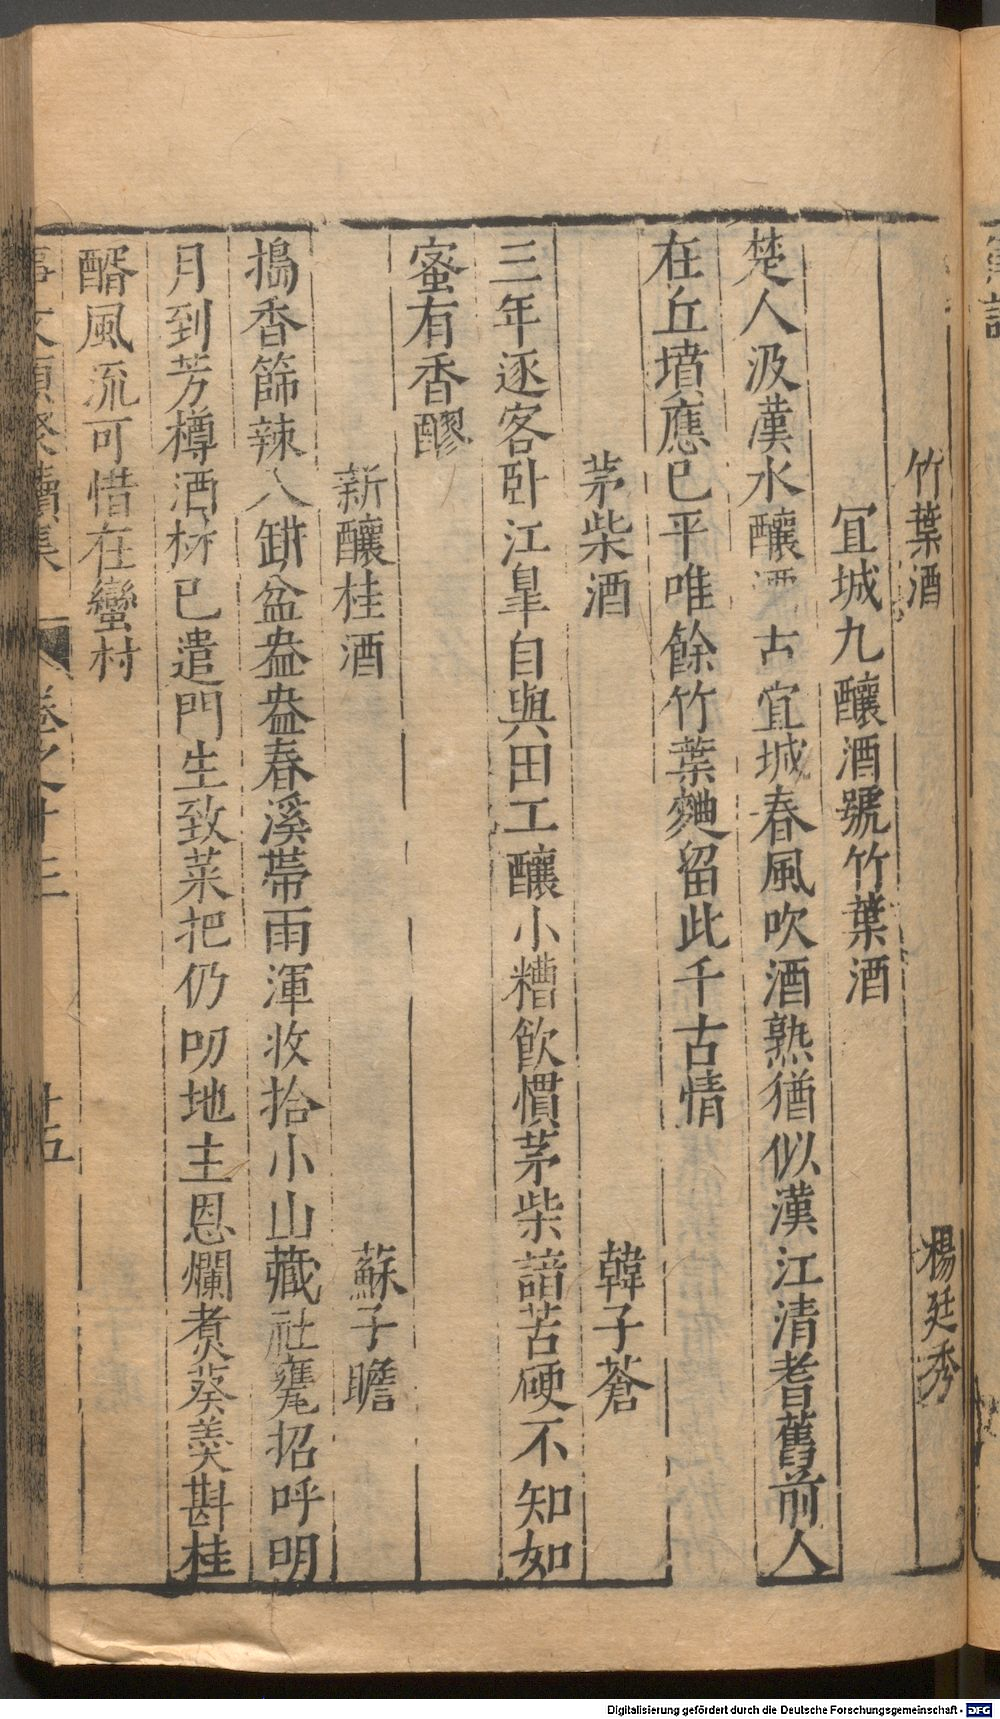 竹葉酒　楊廷秀
宜城九釀酒號竹葉酒
楚人汲漢水釀酒古宜城春風吹酒熟猶似漢江清耆舊前人
在丘墳應已平唯餘竹葉麯留此千古情
茅柴酒　韓子蒼
三年逐客卧江皐自與田工釀小糟飲慣茅柴諳苦硬不知如
蜜有香醪
新釀桂酒　蘇子瞻
搗香篩辣入缾盆盎盎春溪帶雨渾收拾小山藏社甕招呼明
月到芳樽酒材已遣門生致菜把仍叨地主恩爛煮葵羹斟桂
醑風流可惜在蠻村
事文類聚續集　卷之十三　十五
Digitalisierung gefördert durch die Deutsche Forschungsgemeinschaft - DFG